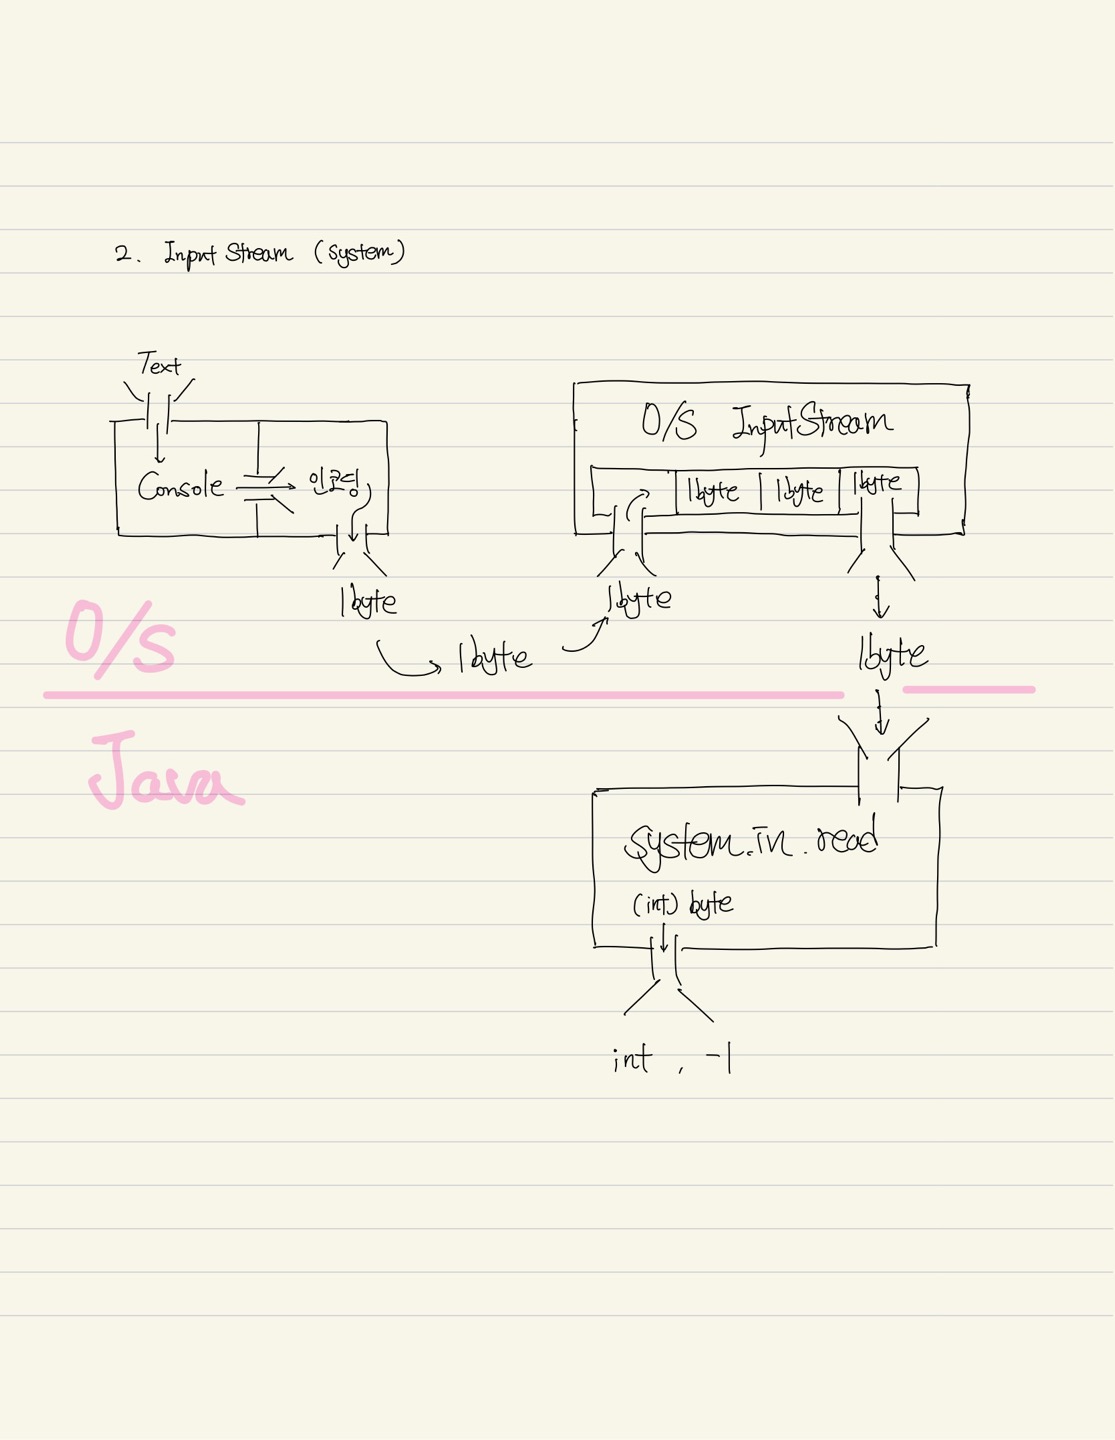 2. Input Stream (System)
Text
Console 인코딩
1byte
1byte
O/S InputStream
1byte 1byte 1byte
1byte
1byte
O/S
Java
System.in.read
(int) byte
int , -1